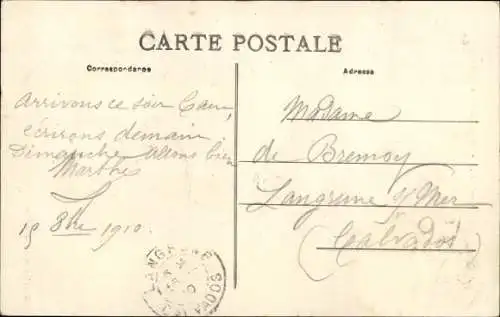 CARTE POSTALE
Correspondance
Adresse
Arrivons ce soir Caen,
écrirons demain
Dimanche. Allons bien
Marthe
15 8bre 1910.
Madame
de Bremoy
Langrune s/ Mer
(Calvados)
LANGRUNE
CALVADOS